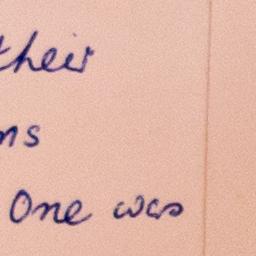 their
ns
One was